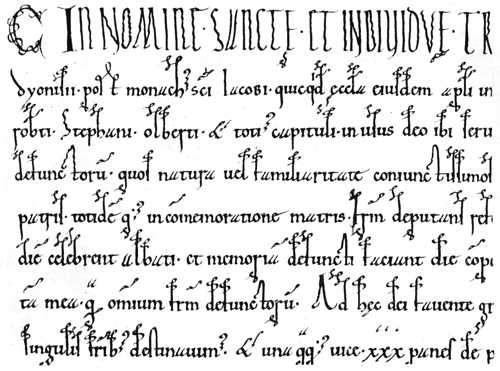 C IN NOMINE· SANCTE· ET INDIVIDVE· TR
dyonisii· post monach sci Iacobi· quicqd eccla eiusdem apli in
robti· Stephani· olberti· & toti capituli· in usus deo ibi seru
defunctoru· quos natura uel familiaritate coniunctissimos
patris· totide q in comemoratione matris· Irm deputans
die celebrent abbati· et memoria defuncti faciant die
ta mea· q omnium frm defunctoru· Ad hec dei fauente gr
singulis frib destinauim· & una q q uice· xxx panes de p